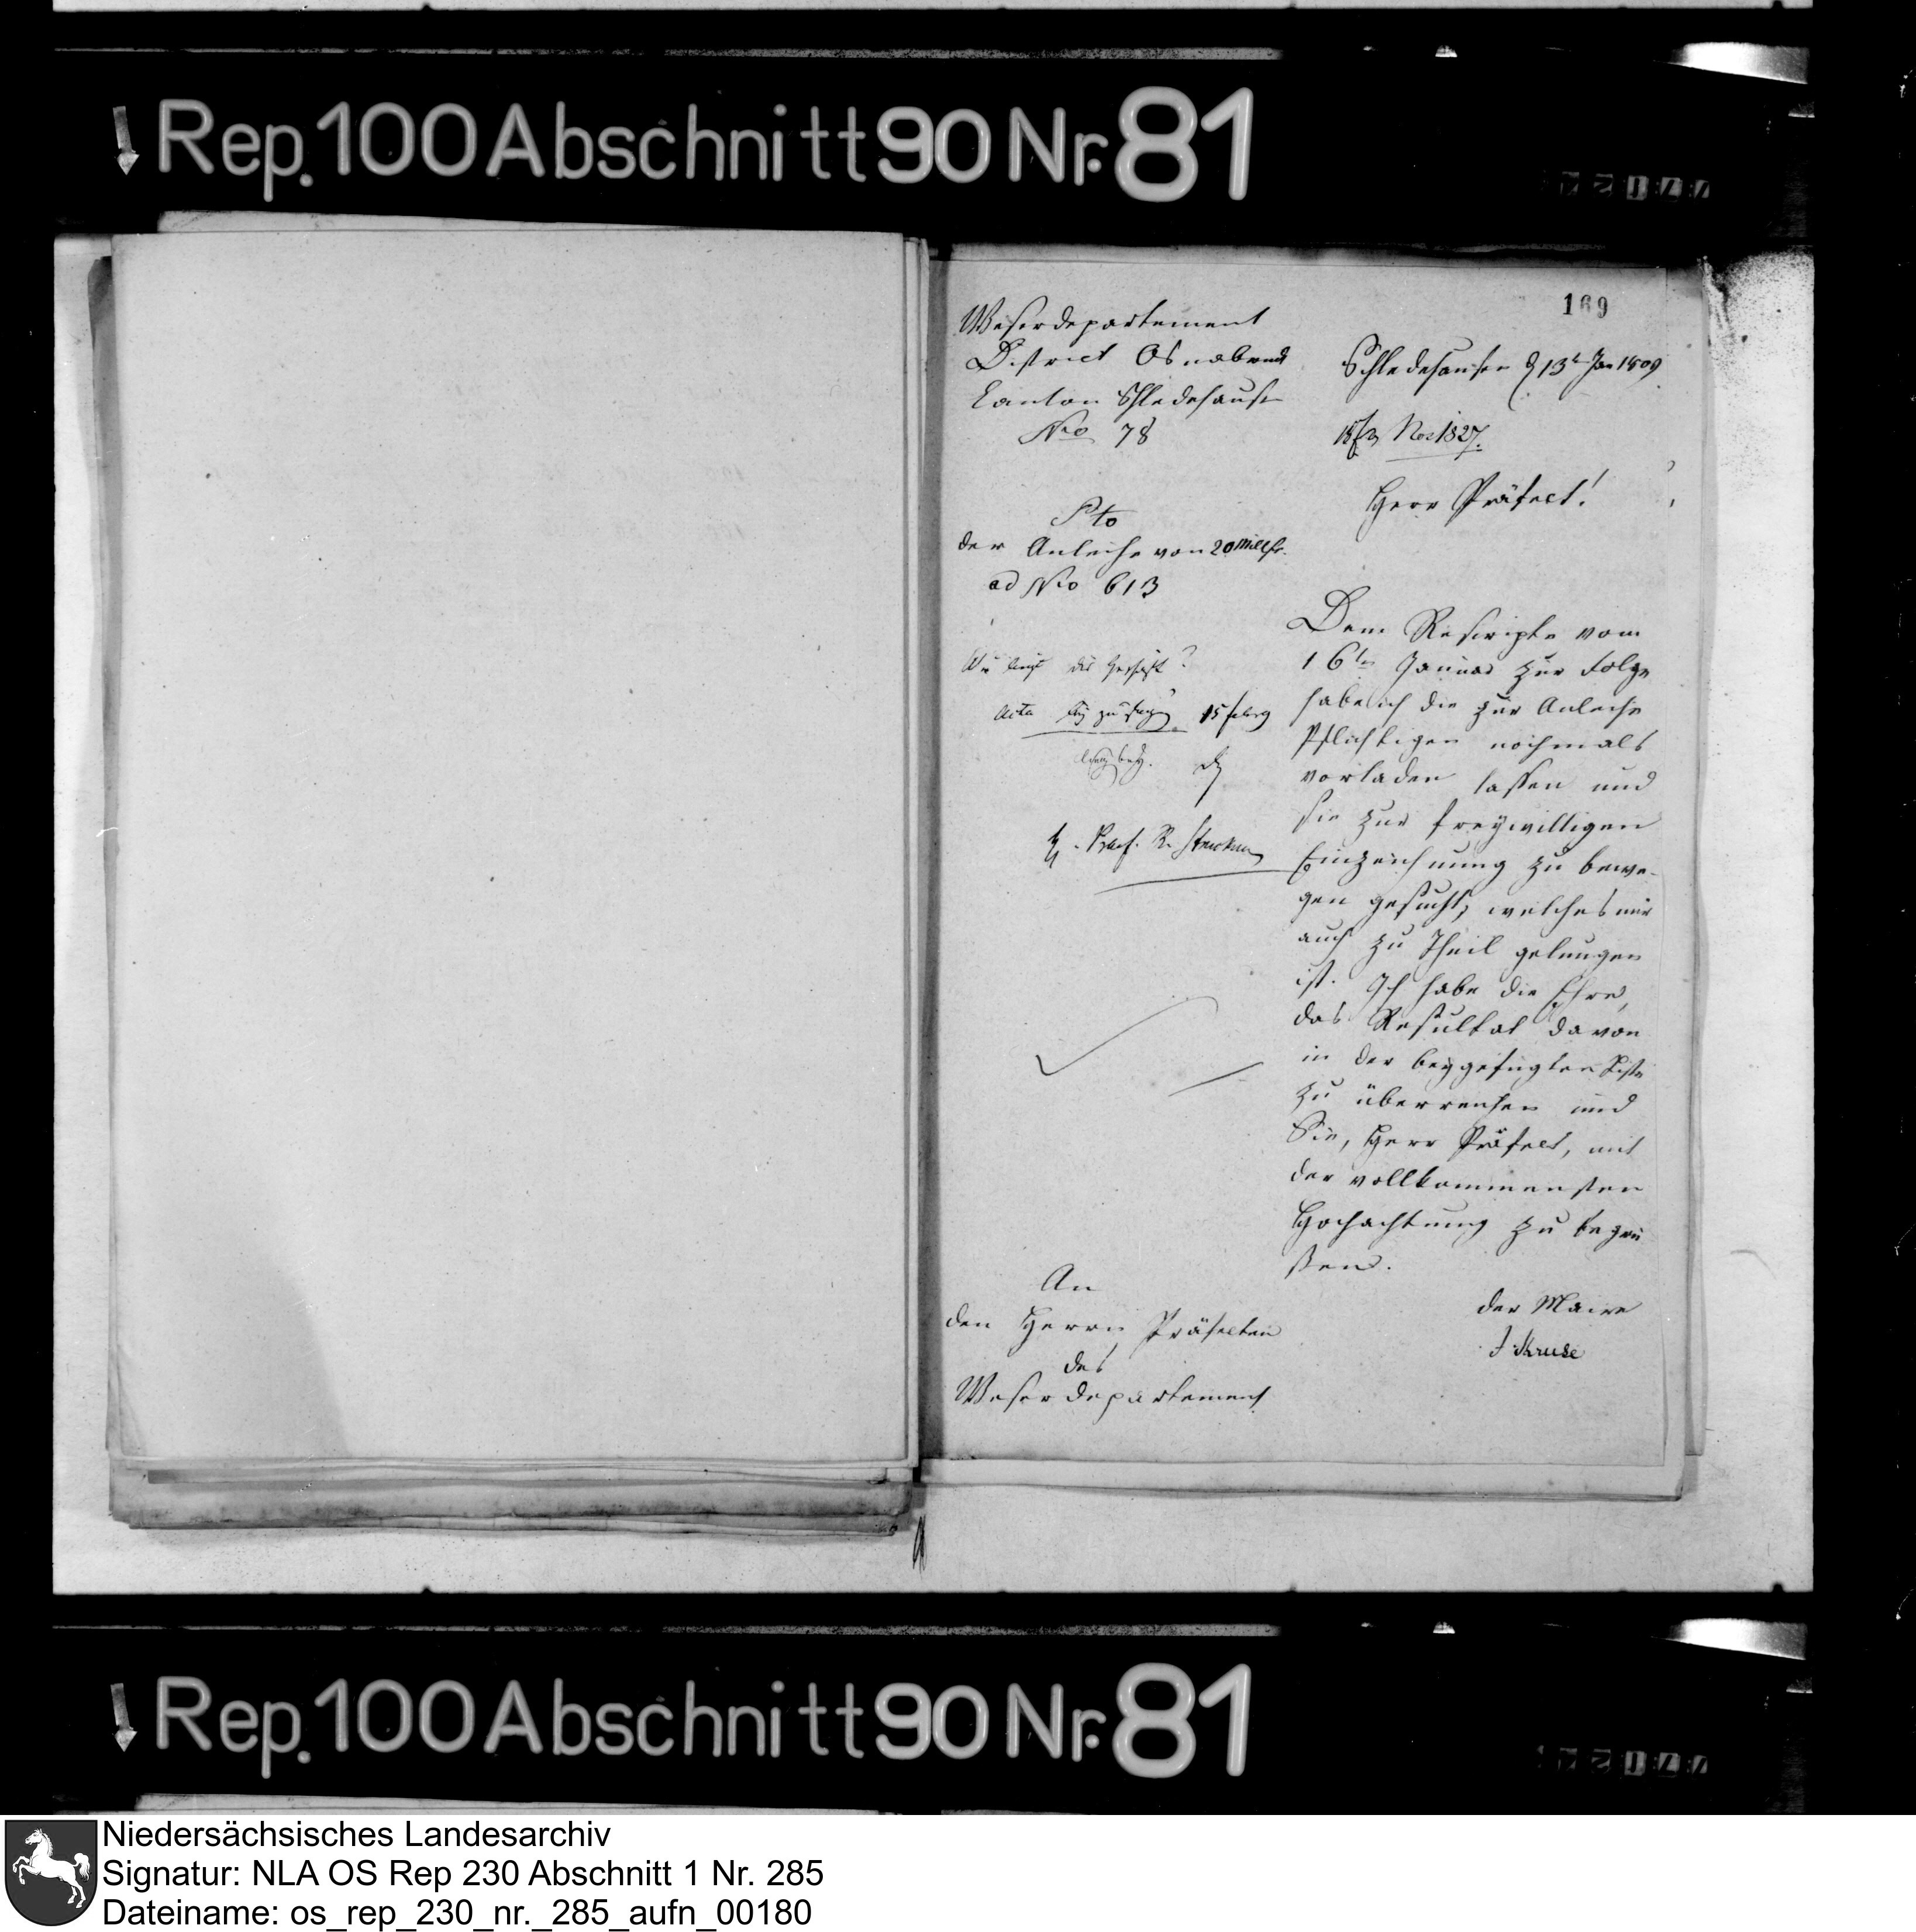 Rep. 100 Abschnitt 90 Nr. 81
169
Weserdepartement
District Osnabrück
Canton Schledehausen
Nro 78
Schledehausen d 13t Jan 1809
Nro 1827.
Herr Präfect!
Pto
der Anleihe von 20 Mill fr.
ad Nro 613
15 febry
Dem Rescripte vom
16ten Januar zur Folge
habe ich die zur Anleihe
Pflichtigen nochmals
vorladen lassen und
sie zur freywilligen
Einzeichnung zu bewe-
gen gesucht, welches mir
auch zu Theil gelungen
ist. Ich habe die Ehre,
das Resultat davon
in der beygefügten Liste
zu überreichen und
Sie, Herr Präfect, mit
der vollkommensten
Hochachtung zu begrü
ßen.
der Maire
J. Kruse
An
den Herrn Präfecten
des
Weserdepartement
Rep. 100 Abschnitt 90 Nr. 81
Niedersächsisches Landesarchiv
Signatur: NLA OS Rep 230 Abschnitt 1 Nr. 285
Dateiname: os_rep_230_nr._285_aufn_00180